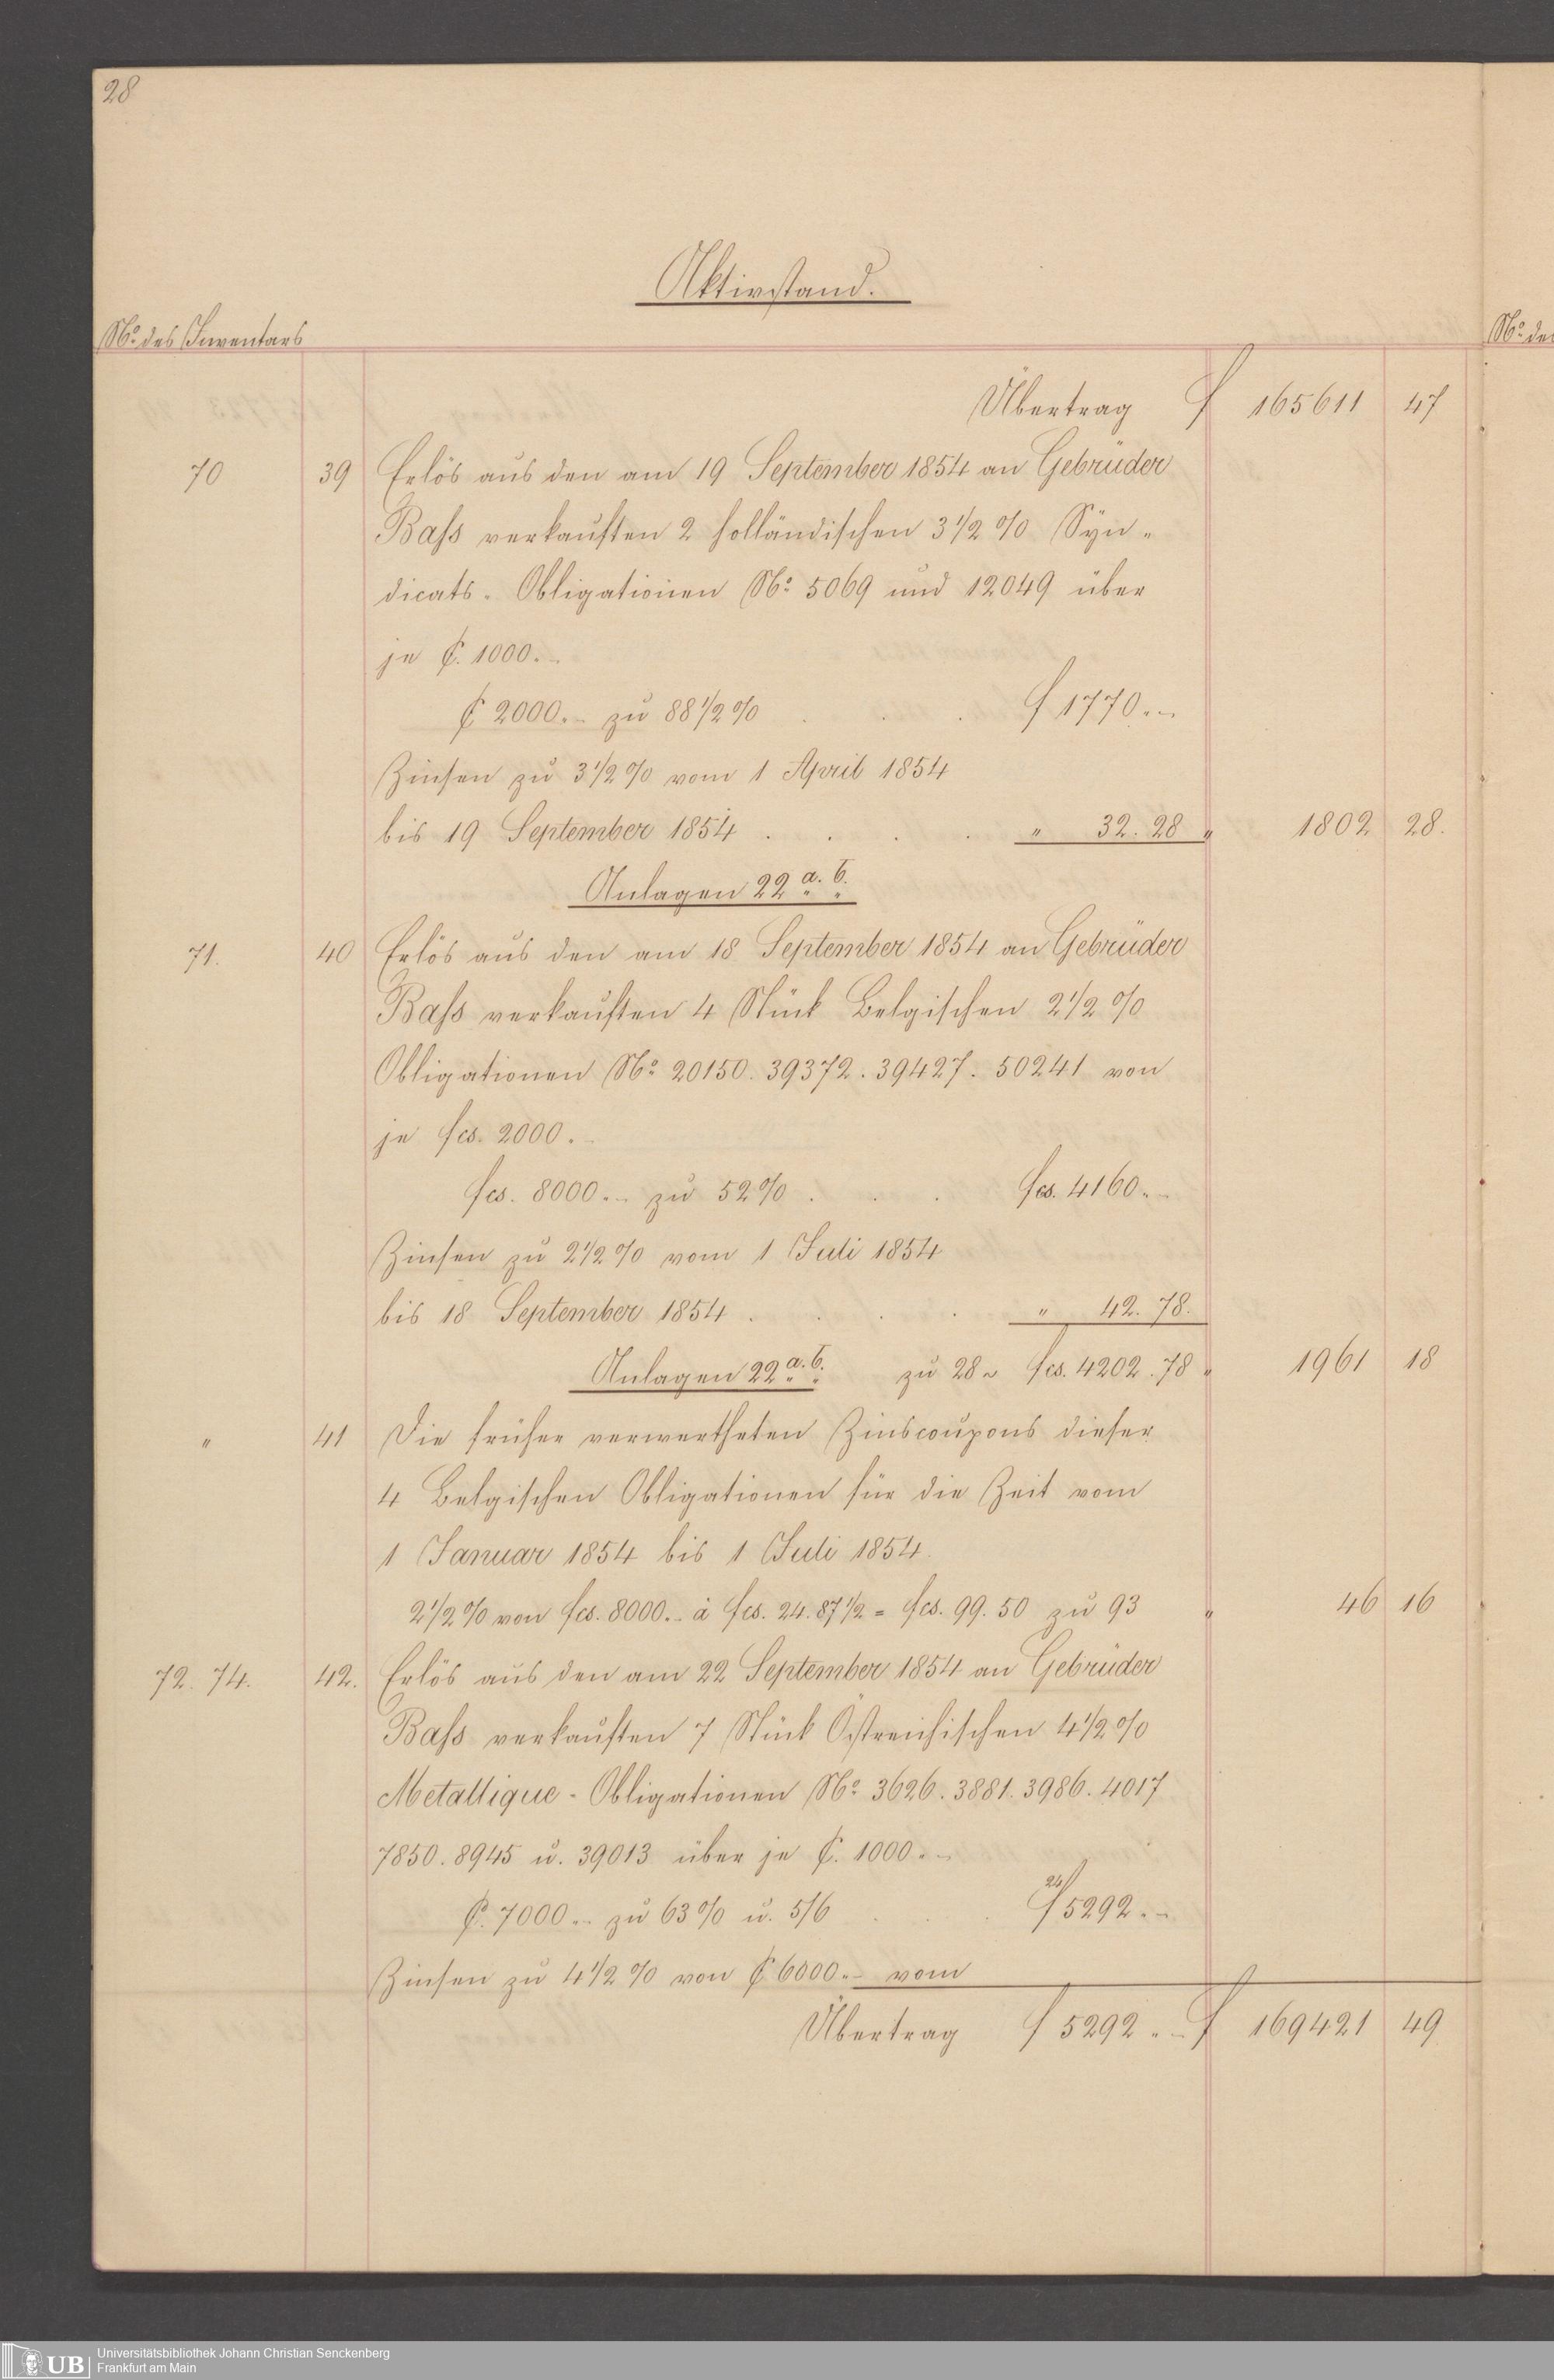 28
Aktivstand.
No. des Inventars
Übertrag f 165611 47
70 39 Erlös aus den am 19 September 1854 an Gebrüder
Bass verkauften 2 holländischen 3 1/2 % Syn-
dicats-Obligationen No. 5069 und 12049 über
je ₵. 1000.-
₵ 2000.- zu 88 1/2 % . . . f 1770.-
Zinsen zu 3 1/2 % vom 1 April 1854
bis 19 September 1854 . . . . " 32. 28 " 1802 28.
Anlagen 22 a. b.
71. 40 Erlös aus den am 18 September 1854 an Gebrüder
Bass verkauften 4 Stück Belgischen 2 1/2 %
Obligationen No. 20150. 39372. 39427. 50241 von
je fcs. 2000.-
fcs. 8000.- zu 52 % . . . fcs. 4160.-
Zinsen zu 2 1/2 % vom 1 Juli 1854
bis 18 September 1854 . . . . " 42. 78.
Anlagen 22 a. b. zu 28 ~ fcs. 4202. 78 " 1961 18
" 41 Die früher verwertheten Zinscoupons dieser
4 Belgischen Obligationen für die Zeit vom
1 Januar 1854 bis 1 Juli 1854.
2 1/2 % von fcs. 8000.- à fcs. 24. 87 1/2 = fcs. 99. 50 zu 93 " 46 16
72. 74. 42. Erlös aus den am 22 September 1854 an Gebrüder
Bass verkauften 7 Stück Östreichischen 4 1/2 %
Metallique-Obligationen No. 3626. 3881. 3986. 4017
7850. 8945 u. 39013 über je ₵. 1000.-
₵. 7000.- zu 63 % u. 5/6 . . . 24/f 5292.-
Zinsen zu 4 1/2 % von ₵ 6000.- vom
Übertrag f 5292.- f 169421 49
No. de
UB Universitätsbibliothek Johann Christian Senckenberg
Frankfurt am Main